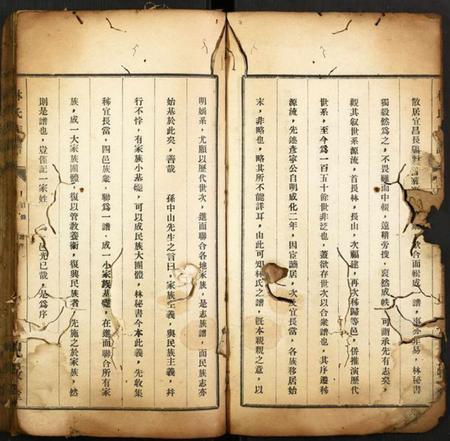 散居宜昌長陽
合而輯成一譜，事亦非易，林秘書
獨毅然為之，不畏
而中輟，遠稽旁搜，裒然成帙，可謂承先有志矣，
觀其叙世系源流，首長林，長山，次福建，再次秭歸等邑，併推演歷代
世系，至今為一百五十餘世非泛也，蓋欲存世次以合衆譜也，其序遷移
源流，先述查寧公自明成化二年，因宦謫居，次及宜長當，各族移居始
末，非略也，略其所不能詳耳，由此可知林氏之譜，既本親親之意，以
明嫡系，尤顧以歷代世次，進而聯合各地家族，是志族譜，而民族志亦
始基於此矣，善哉　孫中山先生之言曰，家族主義，與民族主義，幷
行不悖，有家族小基礎，可以成民族大團體，林秘書今本此義，先收集
秭宜長當，四邑族衆，聯為一譜，成一小家族基礎，在進而聯合所有家
族，成一大家族團體，復以管教養衛，復興民族者，先施之於家族，然
則是譜也，豈僅記一家姓
已哉，是為序
林氏